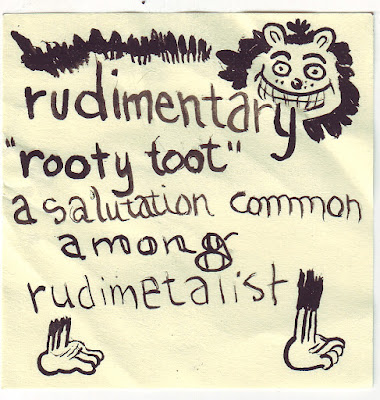 rudimentary
"rooty toot"
a salutation common
among
rudimetalist